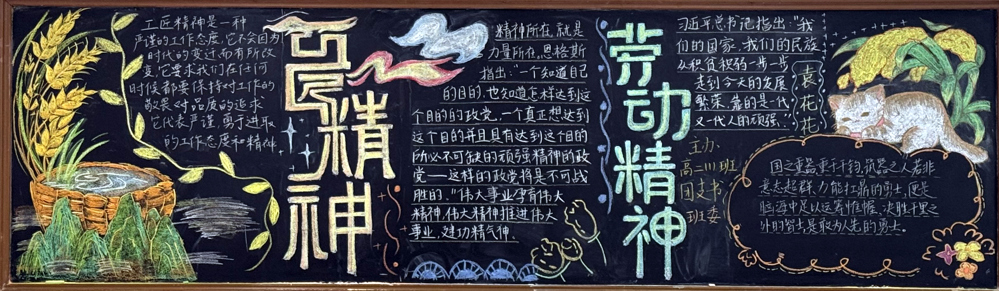 工匠精神是一种
严谨的工作态度,它不会因为
时代的变迁而有所改
变,它要求我们在任何
时候都要保持对工作的
敬畏,对品质的追求
它代表严谨、勇于进取
的工作态度和精神。
工匠精神
精神所在,就是
力量所在,恩格斯
指出:“一个知道自己
的目的,也知道怎样达到这
个目的的政党,一个真正想达到
这个目的并且具有达到这个目的
所必不可缺的顽强精神的政
党——这样的政党将是不可战
胜的。”伟大事业孕育伟大
精神,伟大精神推进伟大
事业,建功精气神。
劳动精神
习近平总书记指出:“我
们的国家,我们的民族
从积贫积弱一步一步
走到今天的发展
繁荣,靠的是一代
又一代人的顽强
袁花花
主办
班
团支书
班委
国之重器重千钧,
意志超群、力能扛鼎的勇士,便是
脑海中足以运筹帷幄、决胜千里之
外的智士,是敢为人先的勇士。